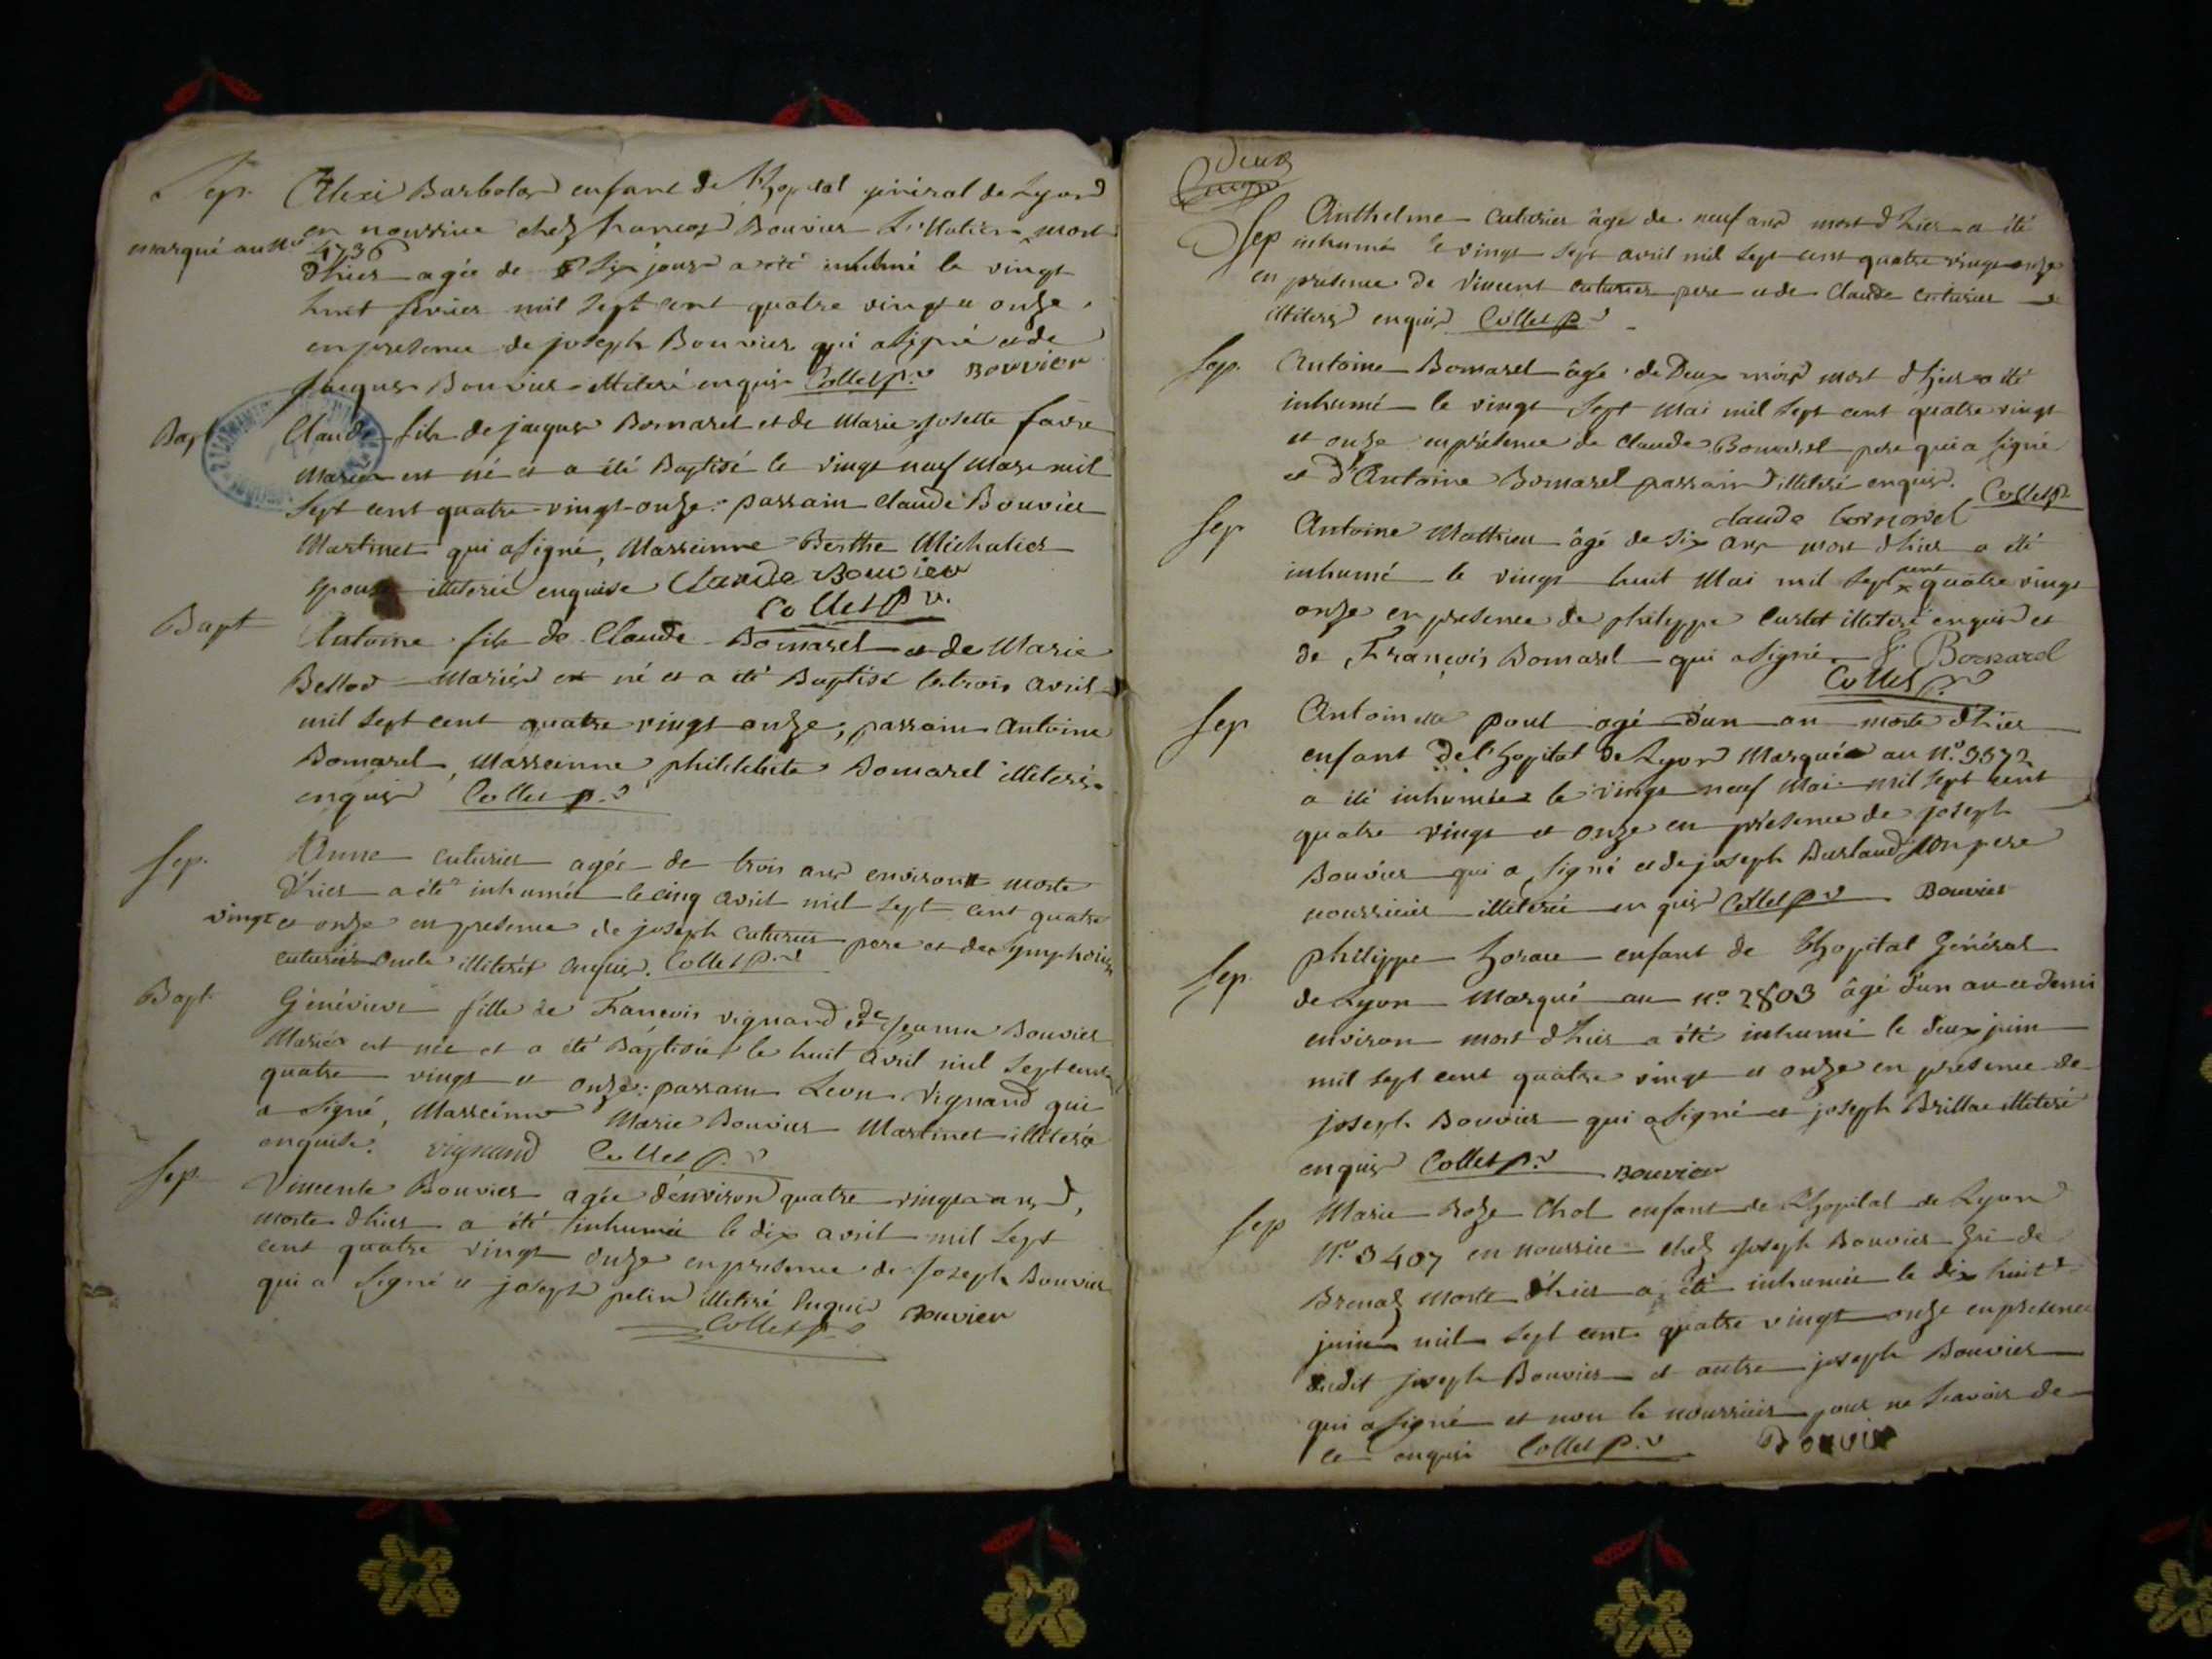 Sep. Alexi Barbolas enfant de l'hopital général de Lyon
en nourrice chez francois Bouvier mort
marqué au No 4736
d'hier agée de Six jours a été inhumé le vingt
huit février mil Sept cent quatre vingt et onze
en presence de joseph Bouvier qui a signé et de
jacques Bouvier illiteré enquis Collet p.v Bouvier
Bapt Claude fils de jacques Bomarel et de Marie josette favre
Mariés est né et a été Baptisé le vingt neuf Mars mil
Sept cent quatre vingt onze. parrain Claude Bouvier
Martinet qui a signé, Marreinne Berthe Michalier
epouse illiterée enquise Claude Bouvier
Collet p v.
Bapt Antoine fils de Claude Bomarel et de Marie
Bellod Mariés est né et a été Baptisé le trois avril
mil Sept cent quatre vingt onze, parrain Antoine
Bomarel, Marreinne Bomarel illiterés
enquis Collet p.v
Sep. Anne cuturier agée de trois ans environ morte
d'hier a été inhumée le cinq avril mil Sept cent quatre
vingt et onze en presence de joseph cuturier pere et de Symphorien
cuturier oncle illiteré enquis. Collet p.v
Bapt. Généviève fille de Francois vignand et de jeanne Bouvier
Mariés est née et a été Baptisée le huit avril mil Sept cent
quatre vingt et onze: parrain Leon Vignand qui
a signé, Marreinne Marie Bouvier Martinet illiterée
enquise. vignand Collet p.v
Sep. Vincente Bouvier agée d'environ quatre vingt ans,
morte d'hier a été inhumée le dix avril mil Sept
cent quatre vingt onze en presence de Joseph Bouvier
qui a signé et joseph pelin illiteré Enquis Bouvier
Collet p.v
Deux
Anthelme cuturier âgé de neuf ans mort d'hier a été
Sep inhumé le vingt Sept avril mil Sept cent quatre vingt onze
en présence de Vincent cuturier pere et de Claude cuturier
illiterés enquis Collet p v
Sep. Antoine Bomarel âgé de Deux mois mort d'hier a été
inhumé le vingt Sept Mai mil Sept cent quatre vingt
et onze en présence de Claude Bomarel pere qui a signé
et d'Antoine Bomarel parrain illiteré enquis. Collet p.
claude bornarel
Sep Antoine Mathieu âgé de Six ans mort d'hier a été
inhumé le vingt huit Mai mil Sept cent quatre vingt
onze en presence de philippe illiteré enquis et
de François Bomarel qui a signé F. Bornarel
Collet p.v
Sep Antoinette pont agé d'un an morte d'hier
enfant de l'hopital de Lyon Marquée au No. 3372
a été inhumée le vingt neuf Mai mil Sept cent
quatre vingt et onze en présence de joseph
Bouvier qui a signé et de joseph Burlaud Son pere
nourricier illiteré enquis Collet p v Bouvier
Sep. philippe horace enfant de l'hopital Général
de Lyon Marqué au No 2803 âgé d'un an et demi
environ mort d'hier a été inhumé le deux juin
mil Sept cent quatre vingt et onze en présence de
joseph Bouvier qui a signé et joseph Brillat illiteré
enquis Collet p.v Bouvier
Sep Marie Roze Chol enfant de l'hopital de Lyon
No. 3407 en nourrice chez joseph Bouvier Gri de
Brenaz morte d'hier a été inhumée le dix huit
juin mil Sept cent quatre vingt onze en présence
dudit joseph Bouvier et autre joseph Bouvier
qui a signé et non le nourricier pour ne Scavoir de
ce enquis Collet p.v Bouvier